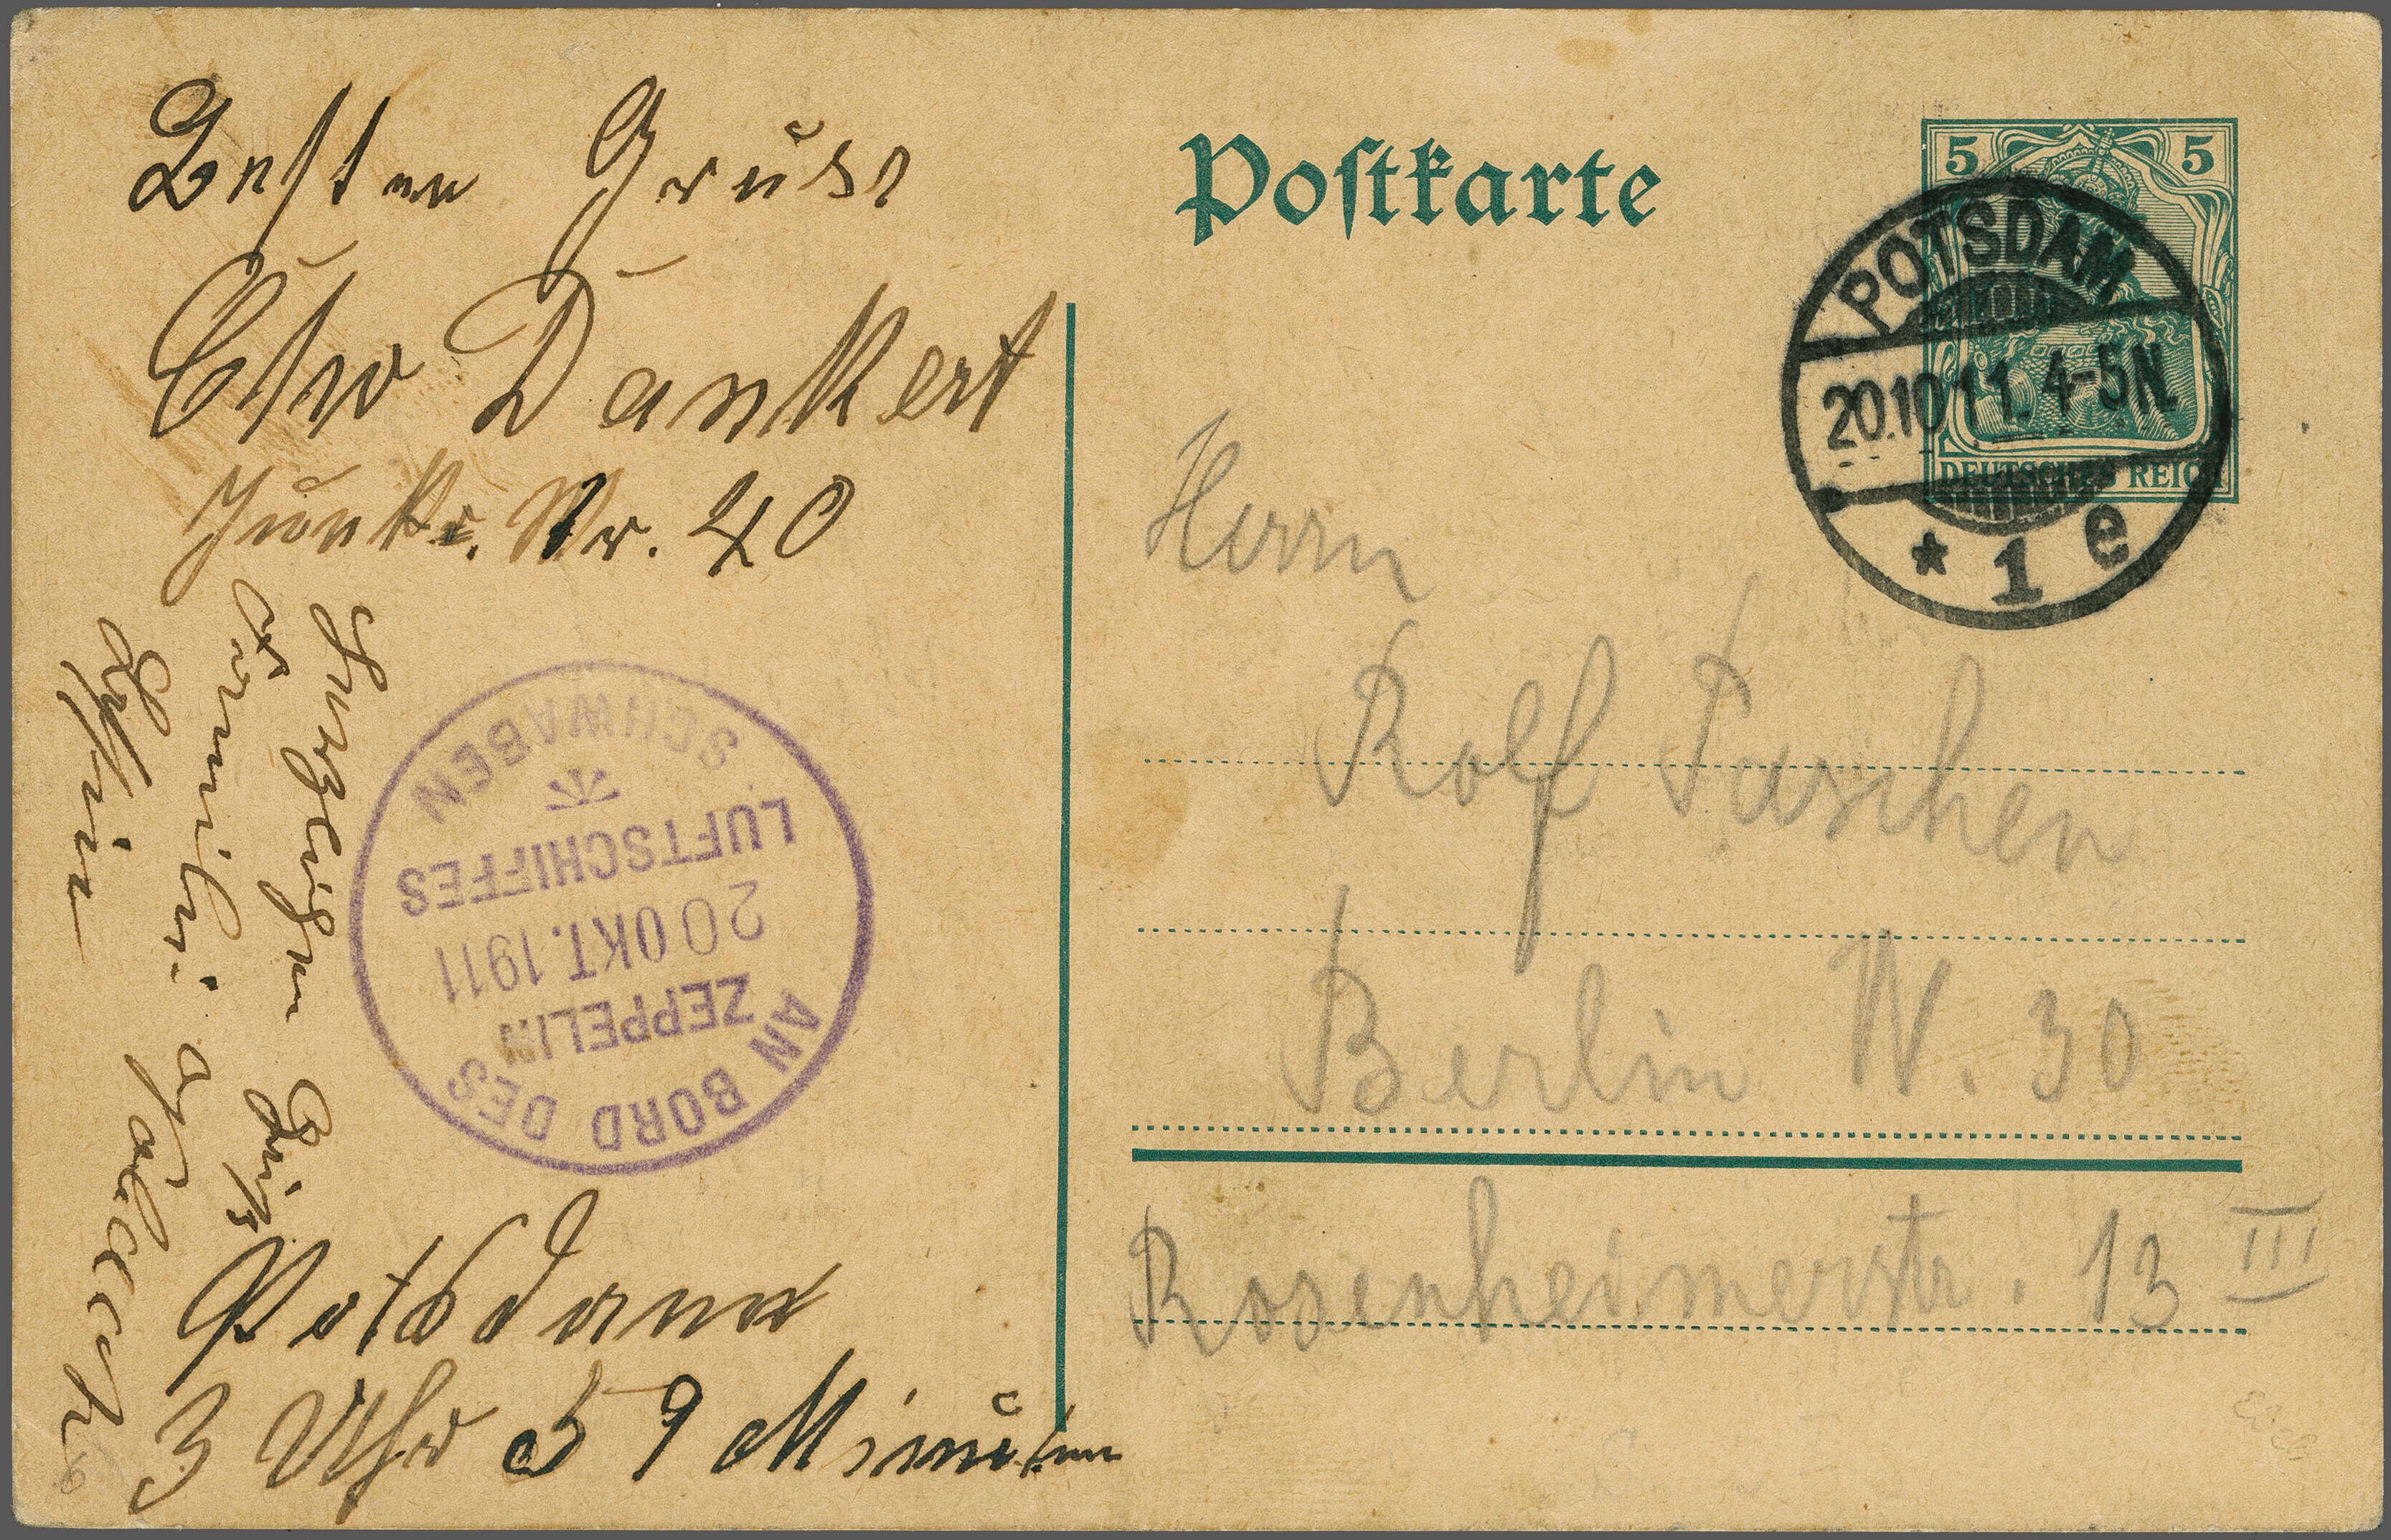 Besten Gruss
Dankert
Nr. 40
Herzlichen Gruß
Potsdam
3 Uhr 59 Minuten
AN BORD DES
ZEPPELIN
20 OKT. 1911
LUFTSCHIFFES
SCHWABEN
Postkarte
5 5
DEUTSCHES REICH
POTSDAM
20.10.11. 4-5N.
* 1 e
Herrn
Rolf Paschen
Berlin W. 30
Rosenheimerstr. 13 III